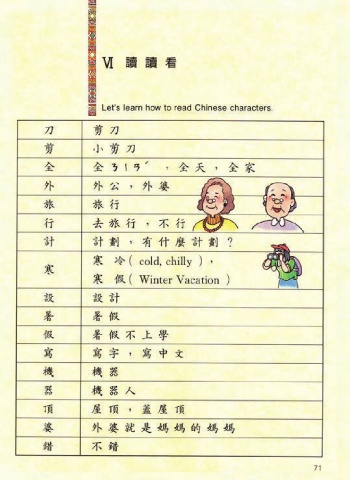 Ⅵ 讀讀看
Let's learn how to read Chinese characters.
刀 剪刀
剪 小剪刀
全 全ㄋㄧㄢˊ，全天，全家
外 外公，外婆
旅 旅行
行 去旅行，不行
計 計劃，有什麼計劃？
寒 寒冷( cold, chilly )，
寒假( Winter Vacation )
設 設計
暑 暑假
假 暑假不上學
寫 寫字，寫中文
機 機器
器 機器人
頂 屋頂，蓋屋頂
婆 外婆就是媽媽的媽媽
錯 不錯
71